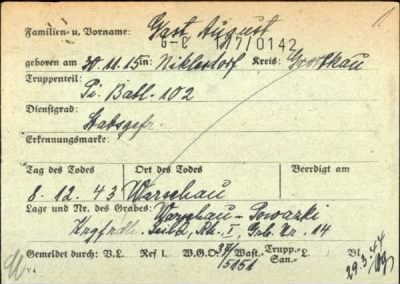 Familien- u. Vorname: Gast August
G-C 117/0142
geboren am 30.11.15 in: Niklasdorf Kreis: Grottkau
Truppenteil:
Pi. Batl. 102
Dienstgrad:
Stabsgefr.
Erkennungsmarke:
Tag des Todes Ort des Todes Beerdigt am
8.12.43 Warschau
Lage und Nr. des Grabes: Warschau-Powazki
Krgfrdh. Rh. I, Grb. Nr. 14
Gemeldet durch: V.L. Ref 1. W.G.O. 37/5151 Wast.- Trupp.- San.- L. Bl.
29.3.44